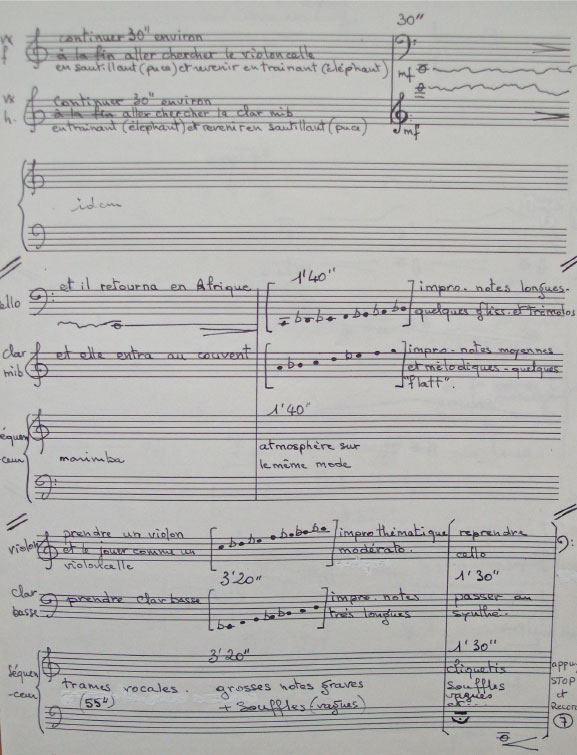 vx
f
continuer 30" environ
à la fin aller chercher le violoncelle
en sautillant (puce) et revenir en trainant (éléphant)
30"
mf
vx
h.
continuer 30" environ
à la fin aller chercher la clar mib
en trainant (éléphant) et revenir en sautillant (puce)
mf
idem
ello
et il retourna en Afrique
1'40"
impro. notes longues.
quelques gliss. et trémolos
clar
mib
et elle entra au couvent
impro. notes moyennes
et mélodiques. quelques
"flatt".
séquen
-ceur
marimba
1'40"
atmosphère sur
le même mode
violon
prendre un violon
et le jouer comme un
violoncelle
impro thématique
modérato.
reprendre
cello
clar
basse
prendre clar basse
3'20"
impro. notes
très longues
1'30"
passer au
synthé.
séquen
-ceur
trames vocales.
(55")
3'20"
grosses notes graves
+ souffles (vagues)
1'30"
cliquetis
souffles
vagues
et
appu
STOP
et
Recor
7